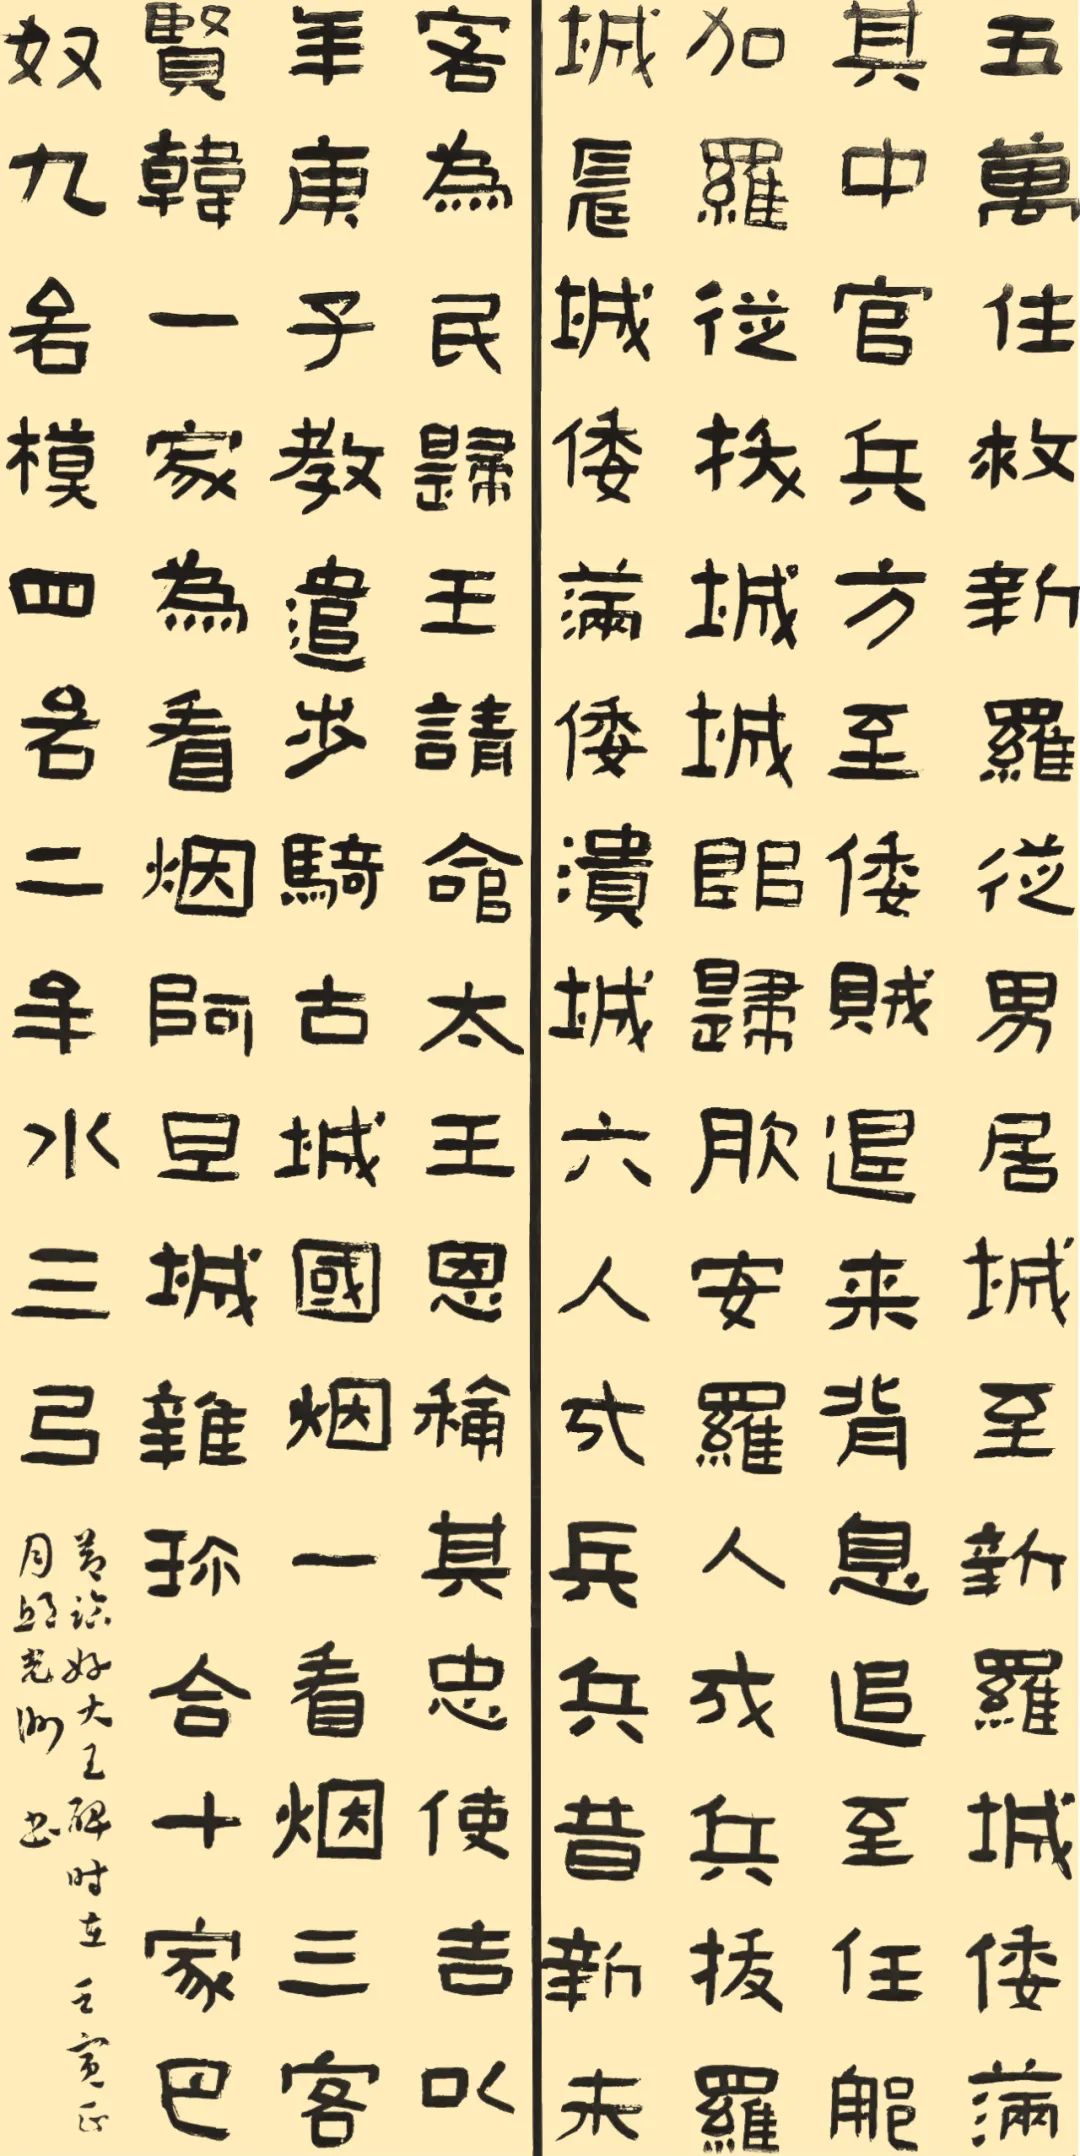 五萬住救新羅從男居城至新羅城倭滿
其中官兵方至倭賊退来背息追至任那
加羅從拔城城即歸服安羅人戍兵拔羅
城晨城倭滿倭潰城六人戍兵兵昔新未
客為民歸王請命太王恩稱其忠使吉以
年庚子教遣步騎古城國烟一看烟三客
賢韓一家為看烟阿旦城雜珍合十家巴
奴九名模四名二年水三弓
節臨好大王碑时在壬寅正
月邱光洲书